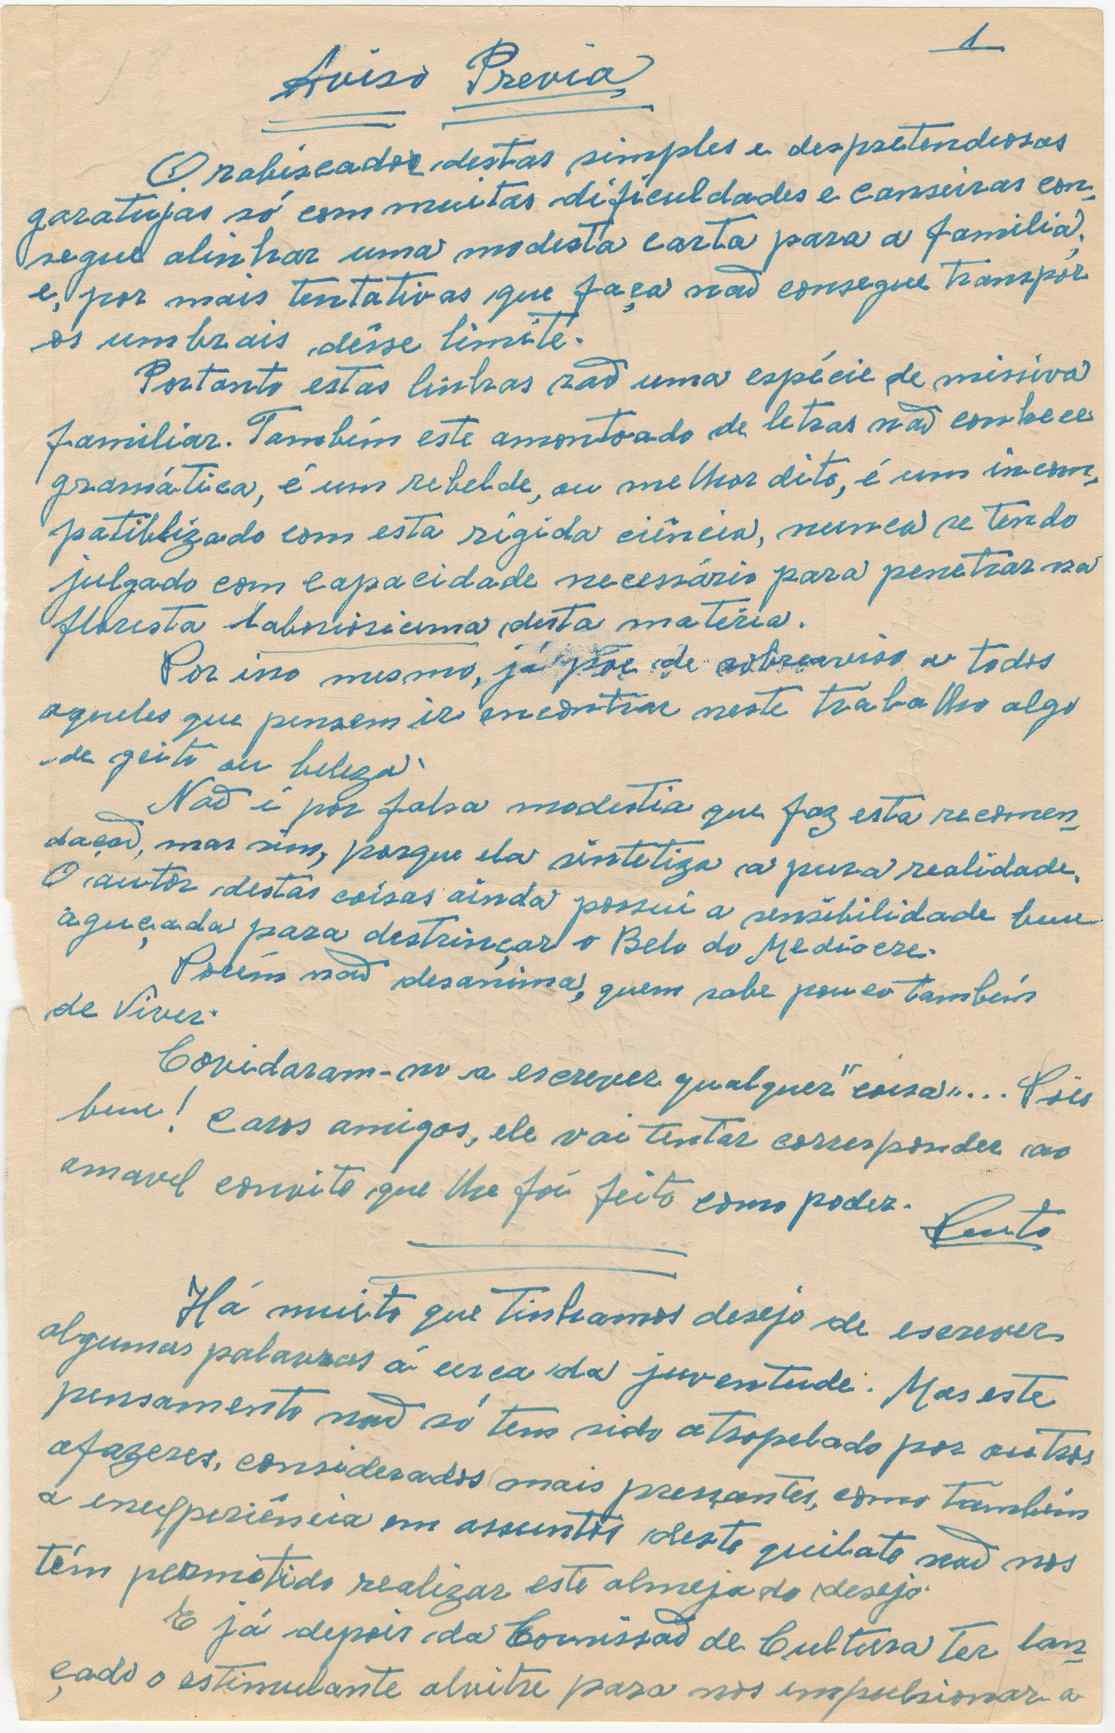 1
Aviso Previa
O rabiscador destas simples e despretendiosas
garatujas só com muitas dificuldades e canseiras con-
segue alinhar uma modesta carta para a familia,
e, por mais tentativas que faça não consegue transpôr
os umbrais dêsse limite.
Portanto estas linhas são uma espécie de missiva
familiar. Também este amontoado de letras não conhece
gramática, é um rebelde, ou melhor dito, é um incom-
patiblizado com esta rígida ciência, nunca se tendo
julgado com capacidade necessário para penetrar na
floresta laboriosicima desta matéria.
Por isso mesmo, já põe de sobreaviso a todos
aqueles que pensem ir encontrar neste trabalho algo
de geito ou beleza.
Não é por falsa modestia que faz esta recomen-
dação, mas sim, porque ela sintetiza a pura realidade.
O autôr destas coisas ainda possui a sensibilidade bem
aguçada para destrinçar o Belo do Mediocre.
Porém não desanima, quem sabe pouco também
de Viver.
Covidaram-no a escrever qualquer "coisa"... Pois
bem! Caros amigos, ele vai tentar corresponder ao
amavel convite que lhe foi feito como poder.
Há muito que tinhamos desejo de escrever
algumas palavras á cerca da juventude. Mas este
pensamento não só tem sido atropelado por outros
afazeres, considerados mais pressantes, como também
a inexperiência em assuntos deste quilate não nos
têm permitido realizar este almejado desejo.
E já depois da Comissão de Cultura ter lan-
çado o estimulante alvitre para nos impulsionar a